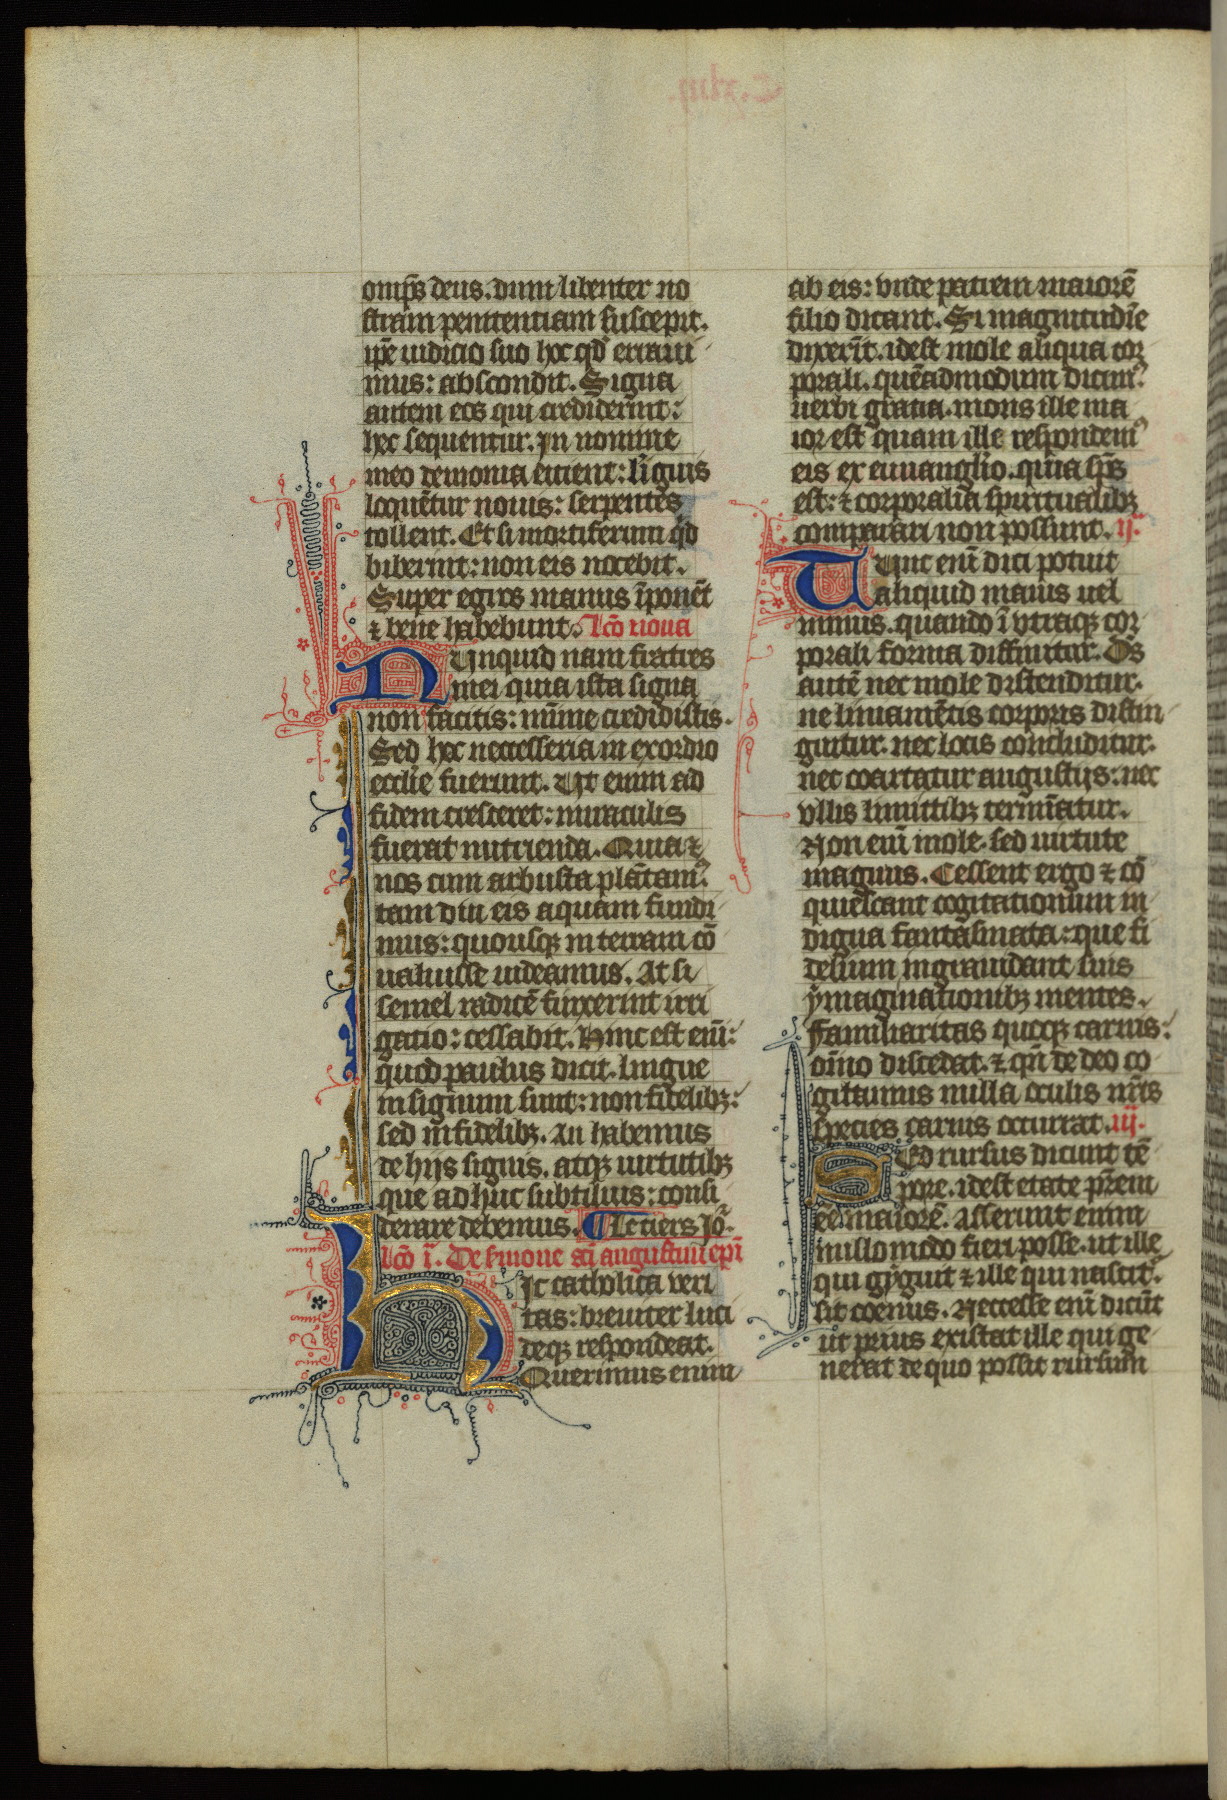 omp̄s deus. dum libenter no
stram penitentiam suscepit.
ip̄e iudicio suo hoc qd̛ erraui
mus: abscondit. Signa
autem eos qui crediderint:
hec sequentur. In nomine
meo demonia eicient: li̅guis
loque̅tur nouis: serpentes
tollent. Et si mortiferum q̇d
biberint: non eis nocebit.
Super egros manus i̅pone̅t
⁊ bene habebunt. lc̅o nona
NUnquid nam fratres
mei quia ista signa
non facitis: mi̅me credidistis.
Sed hec neccessaria in exordio
eccl̅ie fuerunt. Ut enim ad
fidem cresceret: miraculis
fuerat nutrienda. Quia ⁊
nos cum arbusta pla̅tamꝰ.
tam diu eis aquam fundi
mus: quousqꝫ in terram co̅
ualuisse uideamus. At si
semel radice̅ finxerint irri
gatio: cessabit. Hinc est eni̅:
quod paulus dicit. lingue
in signum sunt: non fidelibꝫ:
sed infidelibꝫ. An habemus
de hijs signis. atqꝫ uirtutibꝫ
que ad huc subtilius: consi
derare debemus. ¶ Letters Jo.
lc̅o i̅. De s̅mone sc̅i augustini ep̅i
HIc catholica veri
tas: breuiter luci
deqꝫ respondeat.
Querimus enim
ab eis: vnde patrem maiore̅
filio dicant. Si magnitudi̅e
dixeri̅t. idest mole aliqua cor
porali. que̅admodum dicimꝰ.
uerbi gratia. mons ille ma
ior est quam ille respondemꝰ
eis ex euuanglio. quia sp̅s
est: ⁊ corporalia spiritualibꝫ
comparari non possunt. ij.
TUnc eni̅ dici potuit
aliquid maius uel
minus. quando i̅ vtraqꝫ cor
porali forma diffinitur. D̅s
aute̅ nec mole distenditur.
ne liniame̅tis corporis distin
guitur. nec locis concluditur.
nec coartatur angustijs: nec
vllis limittibꝫ termi̅atur.
Non eni̅ mole. sed uirtute
magnus. Cessent ergo ⁊ co̅
quiescant cogitationum in
digna fantasmata: que fi
delium ingrauidant suis
ẏmaginationibꝫ mentes.
Familiaritas quoqꝫ carnis:
om̅o discedat. ⁊ qn̅ de deo co
gitamus nulla oculis nr̅is
species carnis occurrat. iij.
SEd rursus dicunt te̅
pore. idest etate pr̅em
ee̅ maiore̅. Asserunt enim
nullo modo fieri posse. ut ille
qui gẏgnit ⁊ ille qui nascitꝰ.
sit coeuus. Neccesse eni̅ dicu̅t
ut prius existat ille qui ge
nerat de quo possit rursum